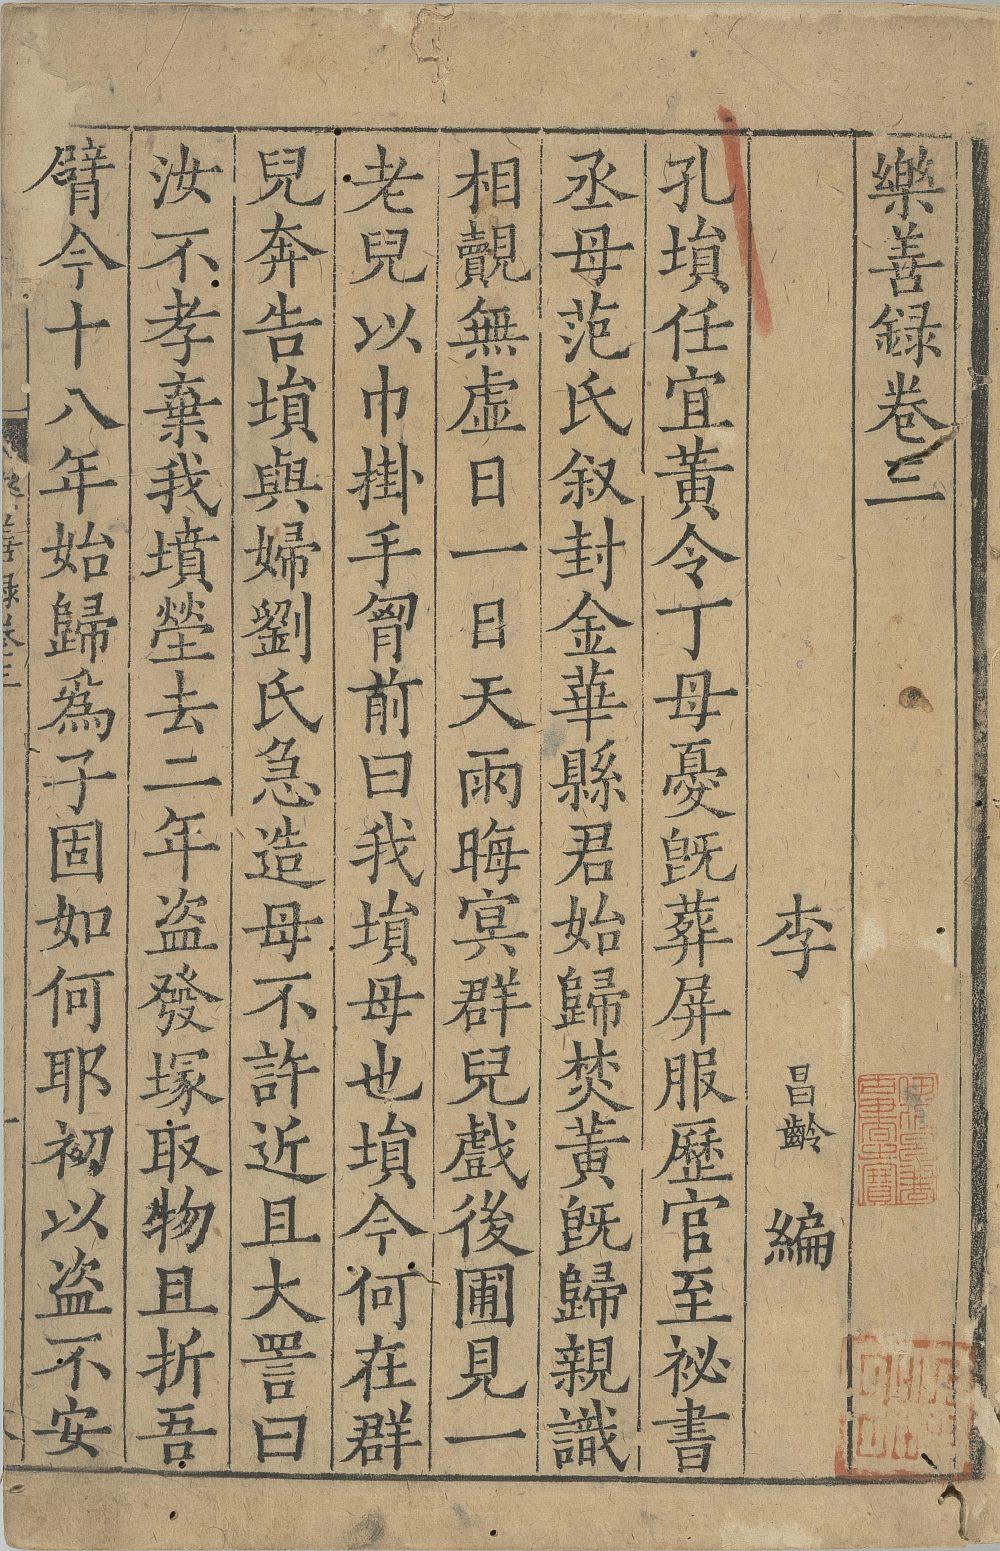 樂善録卷三
李昌齡編
孔塤任宜黃令丁母憂既葬屏服歷官至祕書
丞母范氏叙封金華縣君始歸焚黃既歸親識
相覿無虛日一日天雨晦冥群兒戲後圃見一
老兒以巾掛手胷前曰我塤母也塤今何在群
兒奔告塤與婦劉氏急造母不許近且大詈曰
汝不孝棄我墳塋去二年盗發塚取物且折吾
臂今十八年始歸為子固如何耶初以盗不安